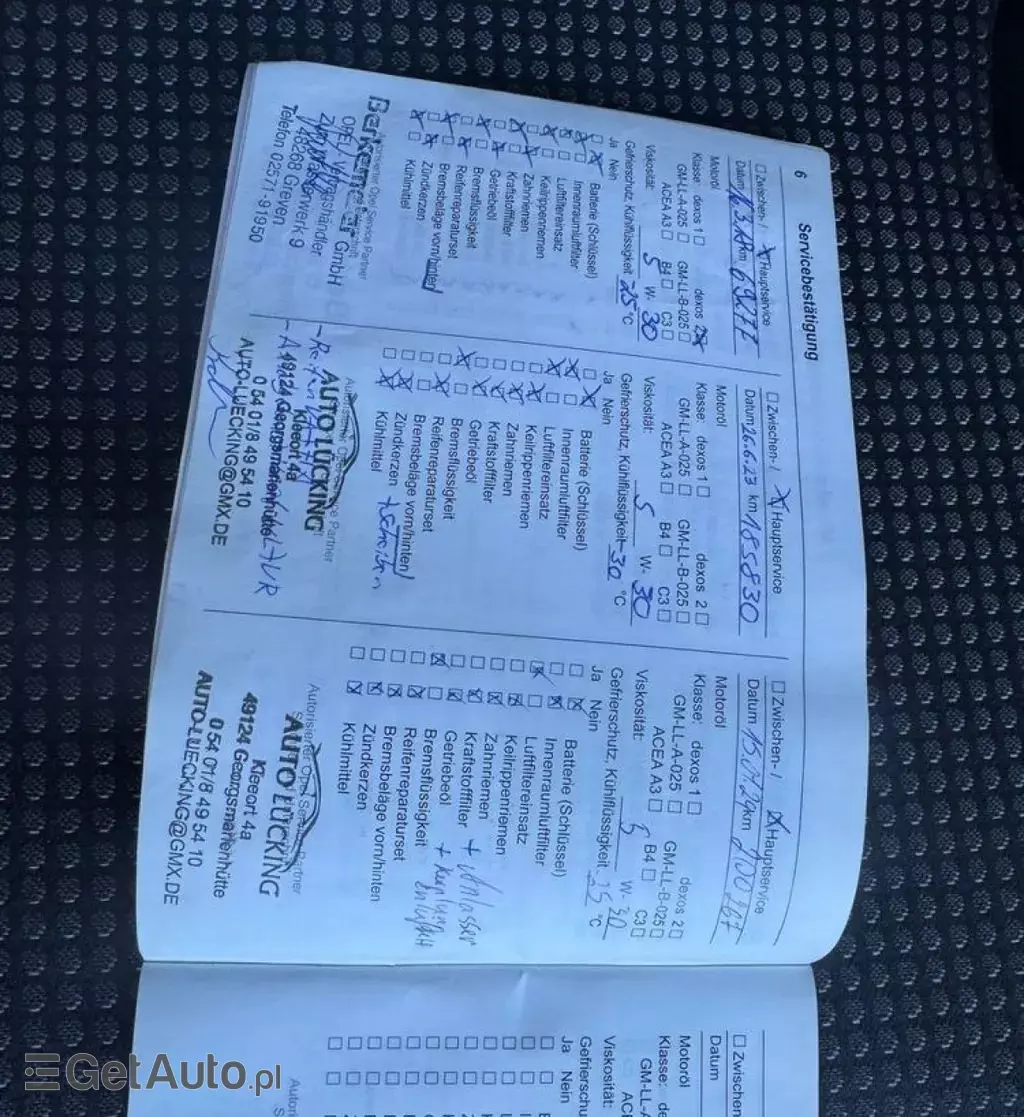 6
Servicebestätigung
☐ Zwischen- / ☒ Hauptservice
Datum km 69277
Motoröl
Klasse: dexos 1 ☐ dexos 2 ☒
GM-LL-A-025 ☐ GM-LL-B-025 ☐
ACEA A3 ☐ B4 ☐ C3 ☐
Viskosität: 5 W- 30
Gefrierschutz, Kühlflüssigkeit 25 °C
Ja Nein
Batterie (Schlüssel)
Innenraumluftfilter
Luftfiltereinsatz
Keilrippenriemen
Zahnriemen
Kraftstofffilter
Getriebeöl
Bremsflüssigkeit
Reifenreparaturset
Bremsbeläge vorn/hinten
Zündkerzen
Kühlmittel
Opel Service Partner
GmbH
OPEL
48268 Greven
Telefon 02571-91950
☐ Zwischen- / ☒ Hauptservice
Datum 26.6.23 km 185830
Motoröl
Klasse: dexos 1 ☐ dexos 2 ☐
GM-LL-A-025 ☐ GM-LL-B-025 ☐
ACEA A3 ☐ B4 ☐ C3 ☐
Viskosität: 5 W- 30
Gefrierschutz, Kühlflüssigkeit -30 °C
Ja Nein
Batterie (Schlüssel)
Innenraumluftfilter
Luftfiltereinsatz
Keilrippenriemen
Zahnriemen
Kraftstofffilter
Getriebeöl
Bremsflüssigkeit
Reifenreparaturset
Bremsbeläge vorn/hinten
Zündkerzen + Scheiben
Kühlmittel
Autorisierter Opel Service Partner
AUTO LÜCKING
Kleeort 4a
49124 Georgsmarienhütte
0 54 01/8 49 54 10
AUTO-LUECKING@GMX.DE
☐ Zwischen- / ☒ Hauptservice
Datum 15.01.24 km
Motoröl
Klasse: dexos 1 ☐ dexos 2 ☐
GM-LL-A-025 ☐ GM-LL-B-025 ☐
ACEA A3 ☐ B4 ☐ C3 ☐
Viskosität: 5 W- 30
Gefrierschutz, Kühlflüssigkeit °C
Ja Nein
Batterie (Schlüssel)
Innenraumluftfilter
Luftfiltereinsatz
Keilrippenriemen
Zahnriemen
Kraftstofffilter + Anlasser
Getriebeöl
Bremsflüssigkeit
Reifenreparaturset
Bremsbeläge vorn/hinten
Zündkerzen
Kühlmittel
Autorisierter Opel Service Partner
AUTO LÜCKING
Kleeort 4a
49124 Georgsmarienhütte
0 54 01/8 49 54 10
AUTO-LUECKING@GMX.DE
☐ Zwischen
Datum
Motoröl
Klasse: de
GM-LL-A
ACEA
Viskosität:
Gefrierschu
Ja Nein
Autori
GetAuto.pl